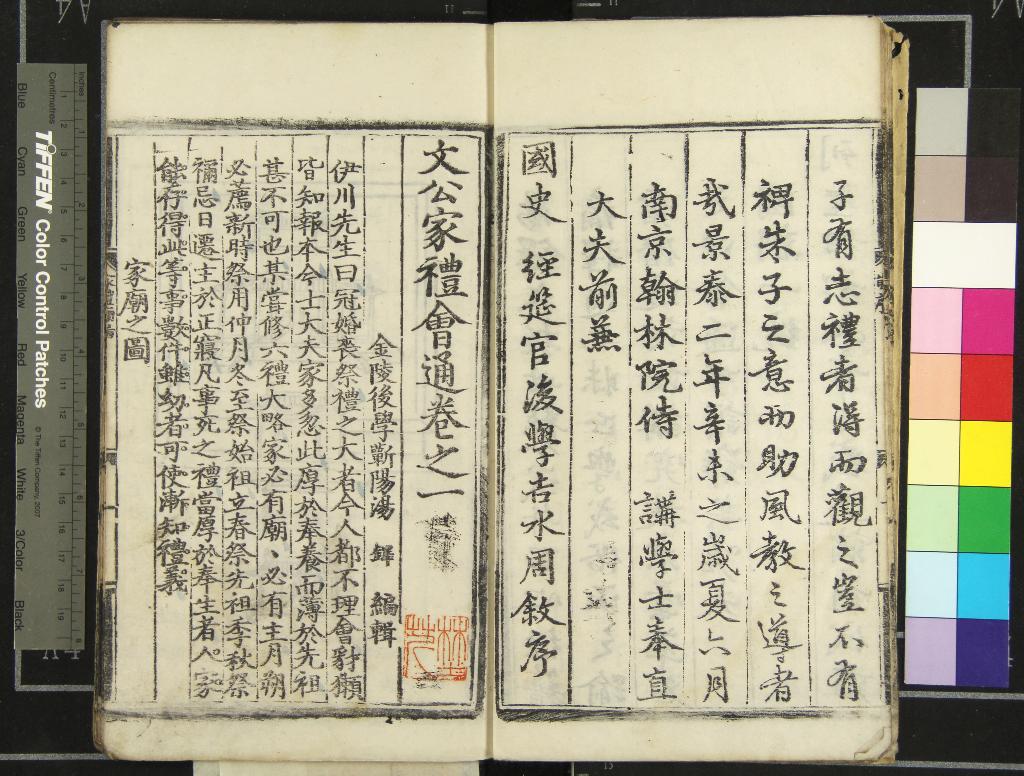 子有志禮者得而觀之豈不有
裨朱子之意而助風教之導者
哉景泰二年辛未之歲夏六月
南京翰林院侍 講學士奉直
大夫前兼
國史經筵官後學吉水周敘序
文公家禮會通卷之一
金陵後學蘄陽湯 鐸 編輯
伊川先生曰冠婚喪祭禮之大者今人都不理會豺獺
皆知報本今士大夫家多忽此厚於奉養而薄於先祖
甚不可也某嘗修六禮大略家必有廟、必有主月朔
必薦新時祭用仲月冬至祭始祖立春祭先祖季秋祭
禰忌日遷主於正寢凡事死之禮當厚於奉生者人家
能存得此等事數件雖幼者可使漸知禮義
家廟之圖
TIFFEN Color Control Patches
© The Tiffen Company, 2007
Inches
Centimetres
Blue
Cyan
Green
Yellow
Red
Magenta
White
3/Color
Black